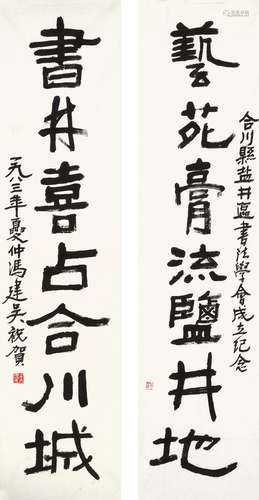 藝苑膏流鹽井地
合川縣盐井區書法學會成立纪念
書井喜占合川城
一九八三年夏仲馮建吴祝賀